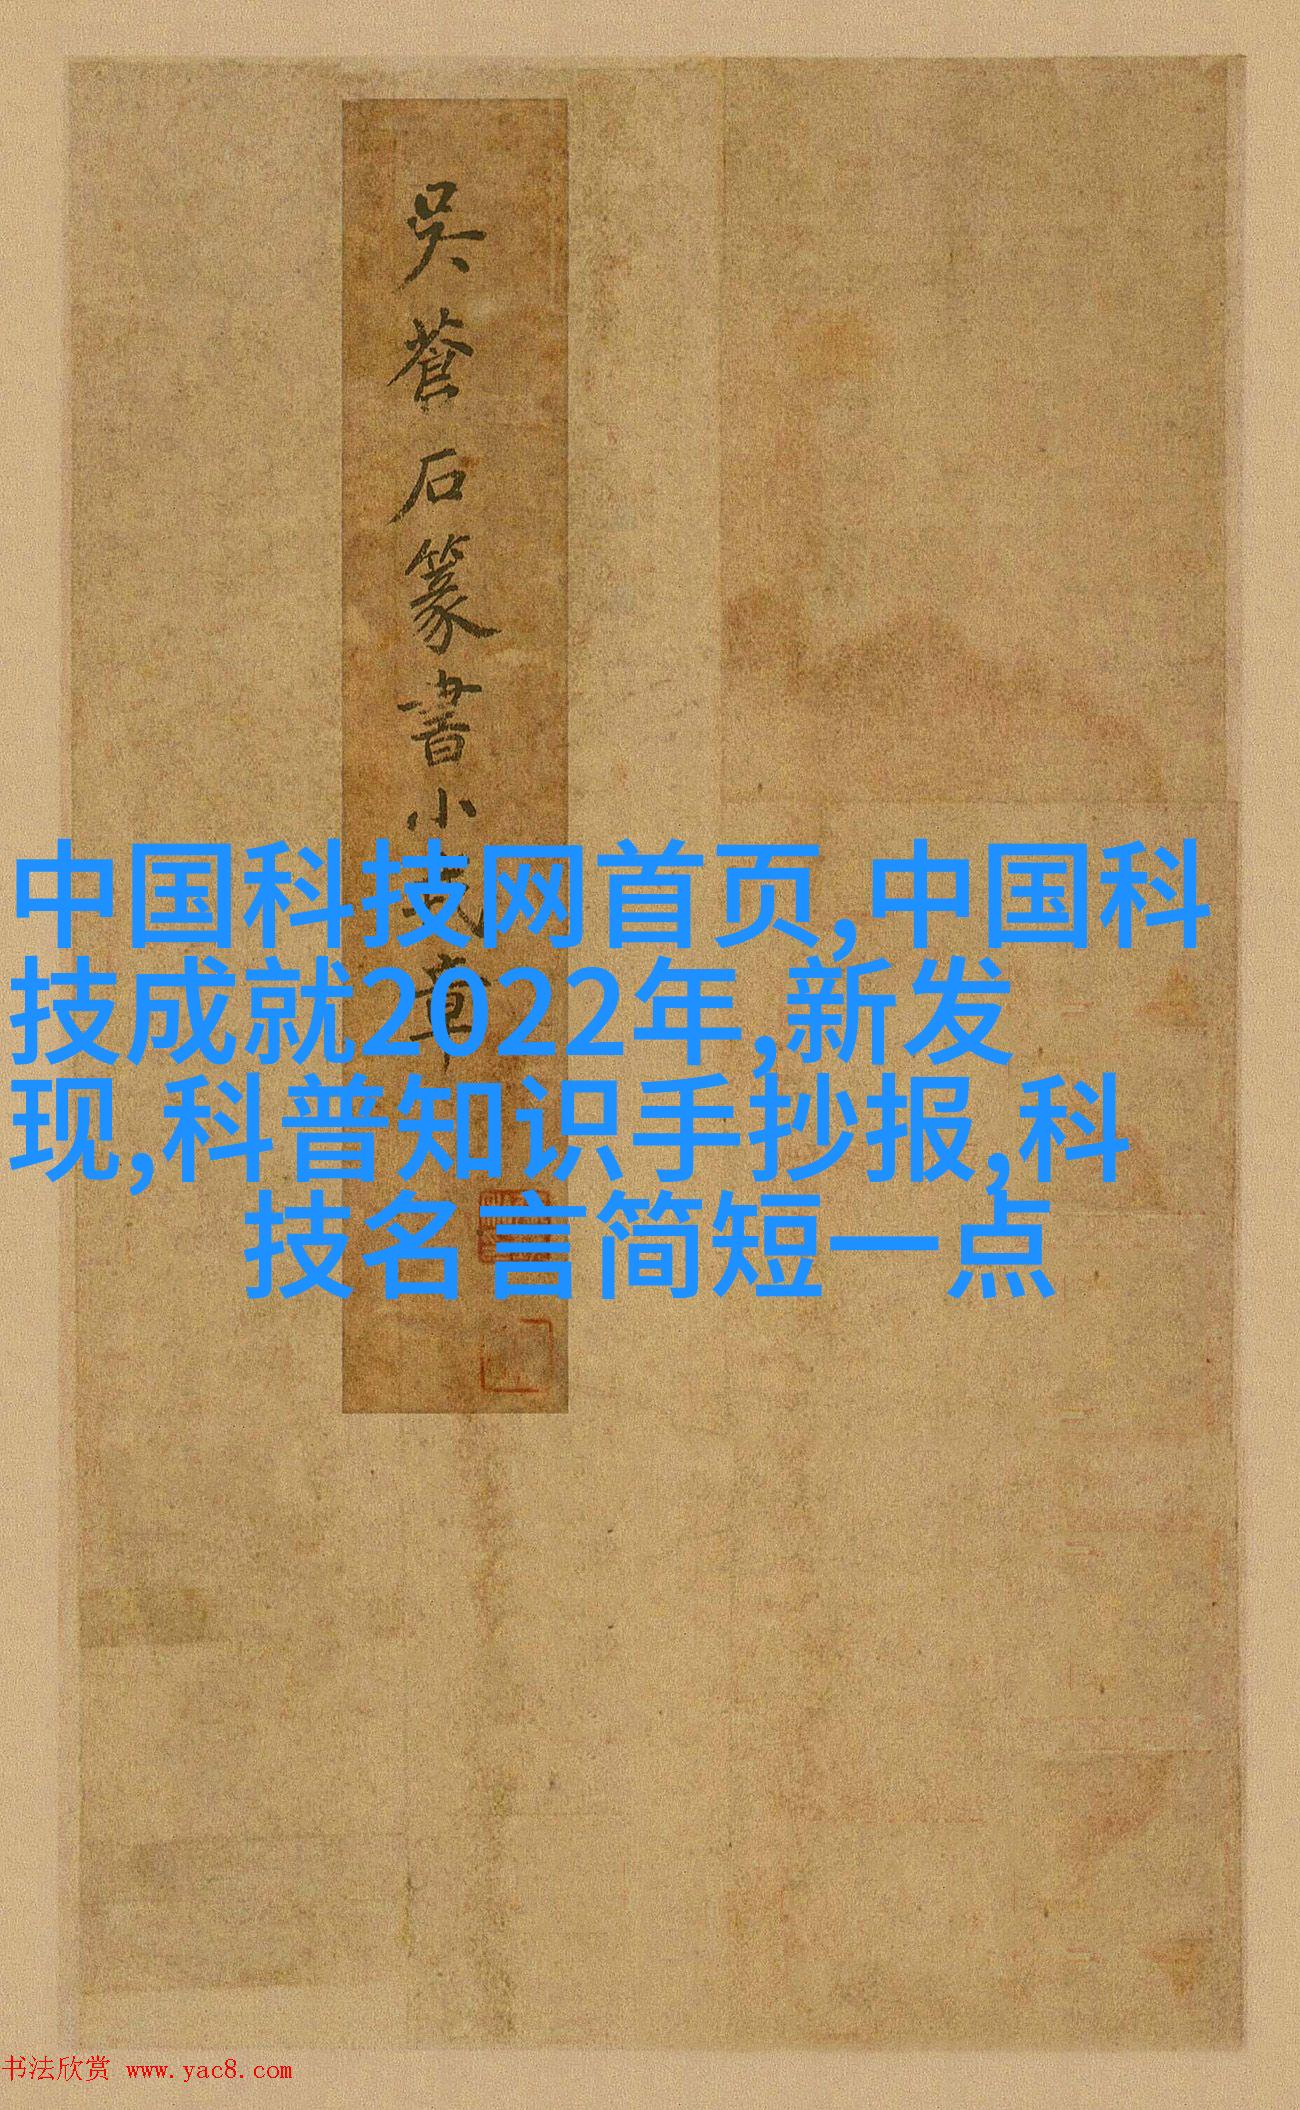 吴蒼石篆書小弍章
中国科技网首页,中国科
技成就2022年,新发
现,科普知识手抄报,科
技名言简短一点
书法欣赏 www.yac8.com